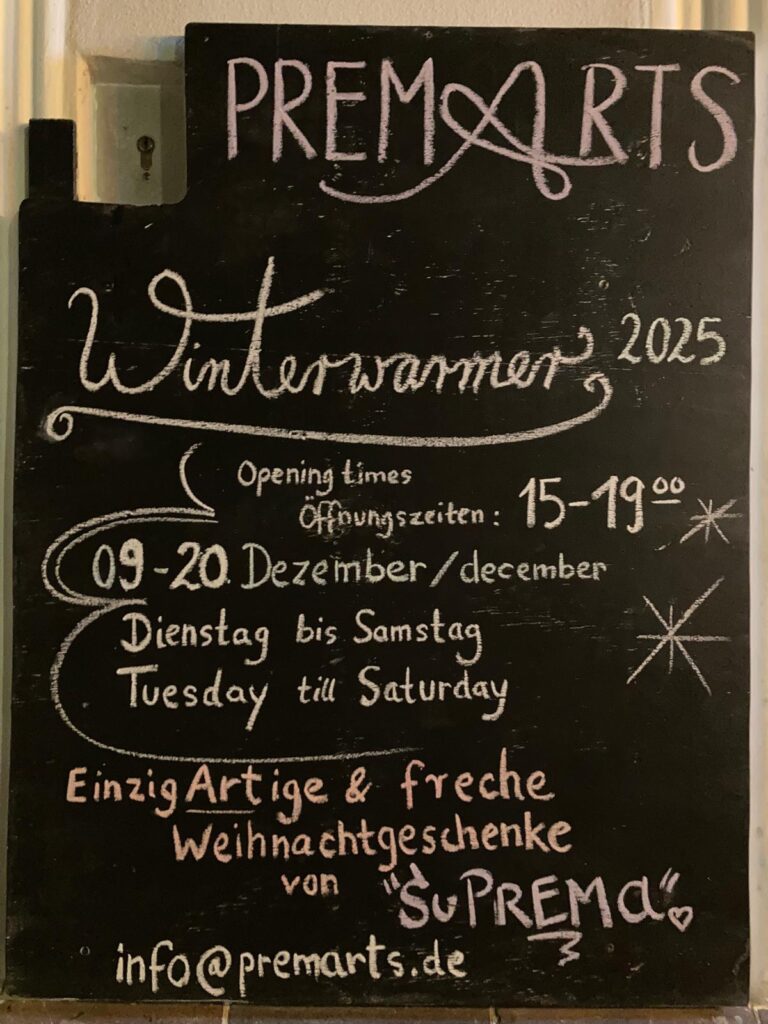 PREMARTS
Winterwarmer 2025
Opening times
Öffnungszeiten: 15-19⁰⁰
09-20. Dezember/december
Dienstag bis Samstag
Tuesday till Saturday
EinzigArtige & freche
Weihnachtgeschenke
von "SuPREMa"
info@premarts.de